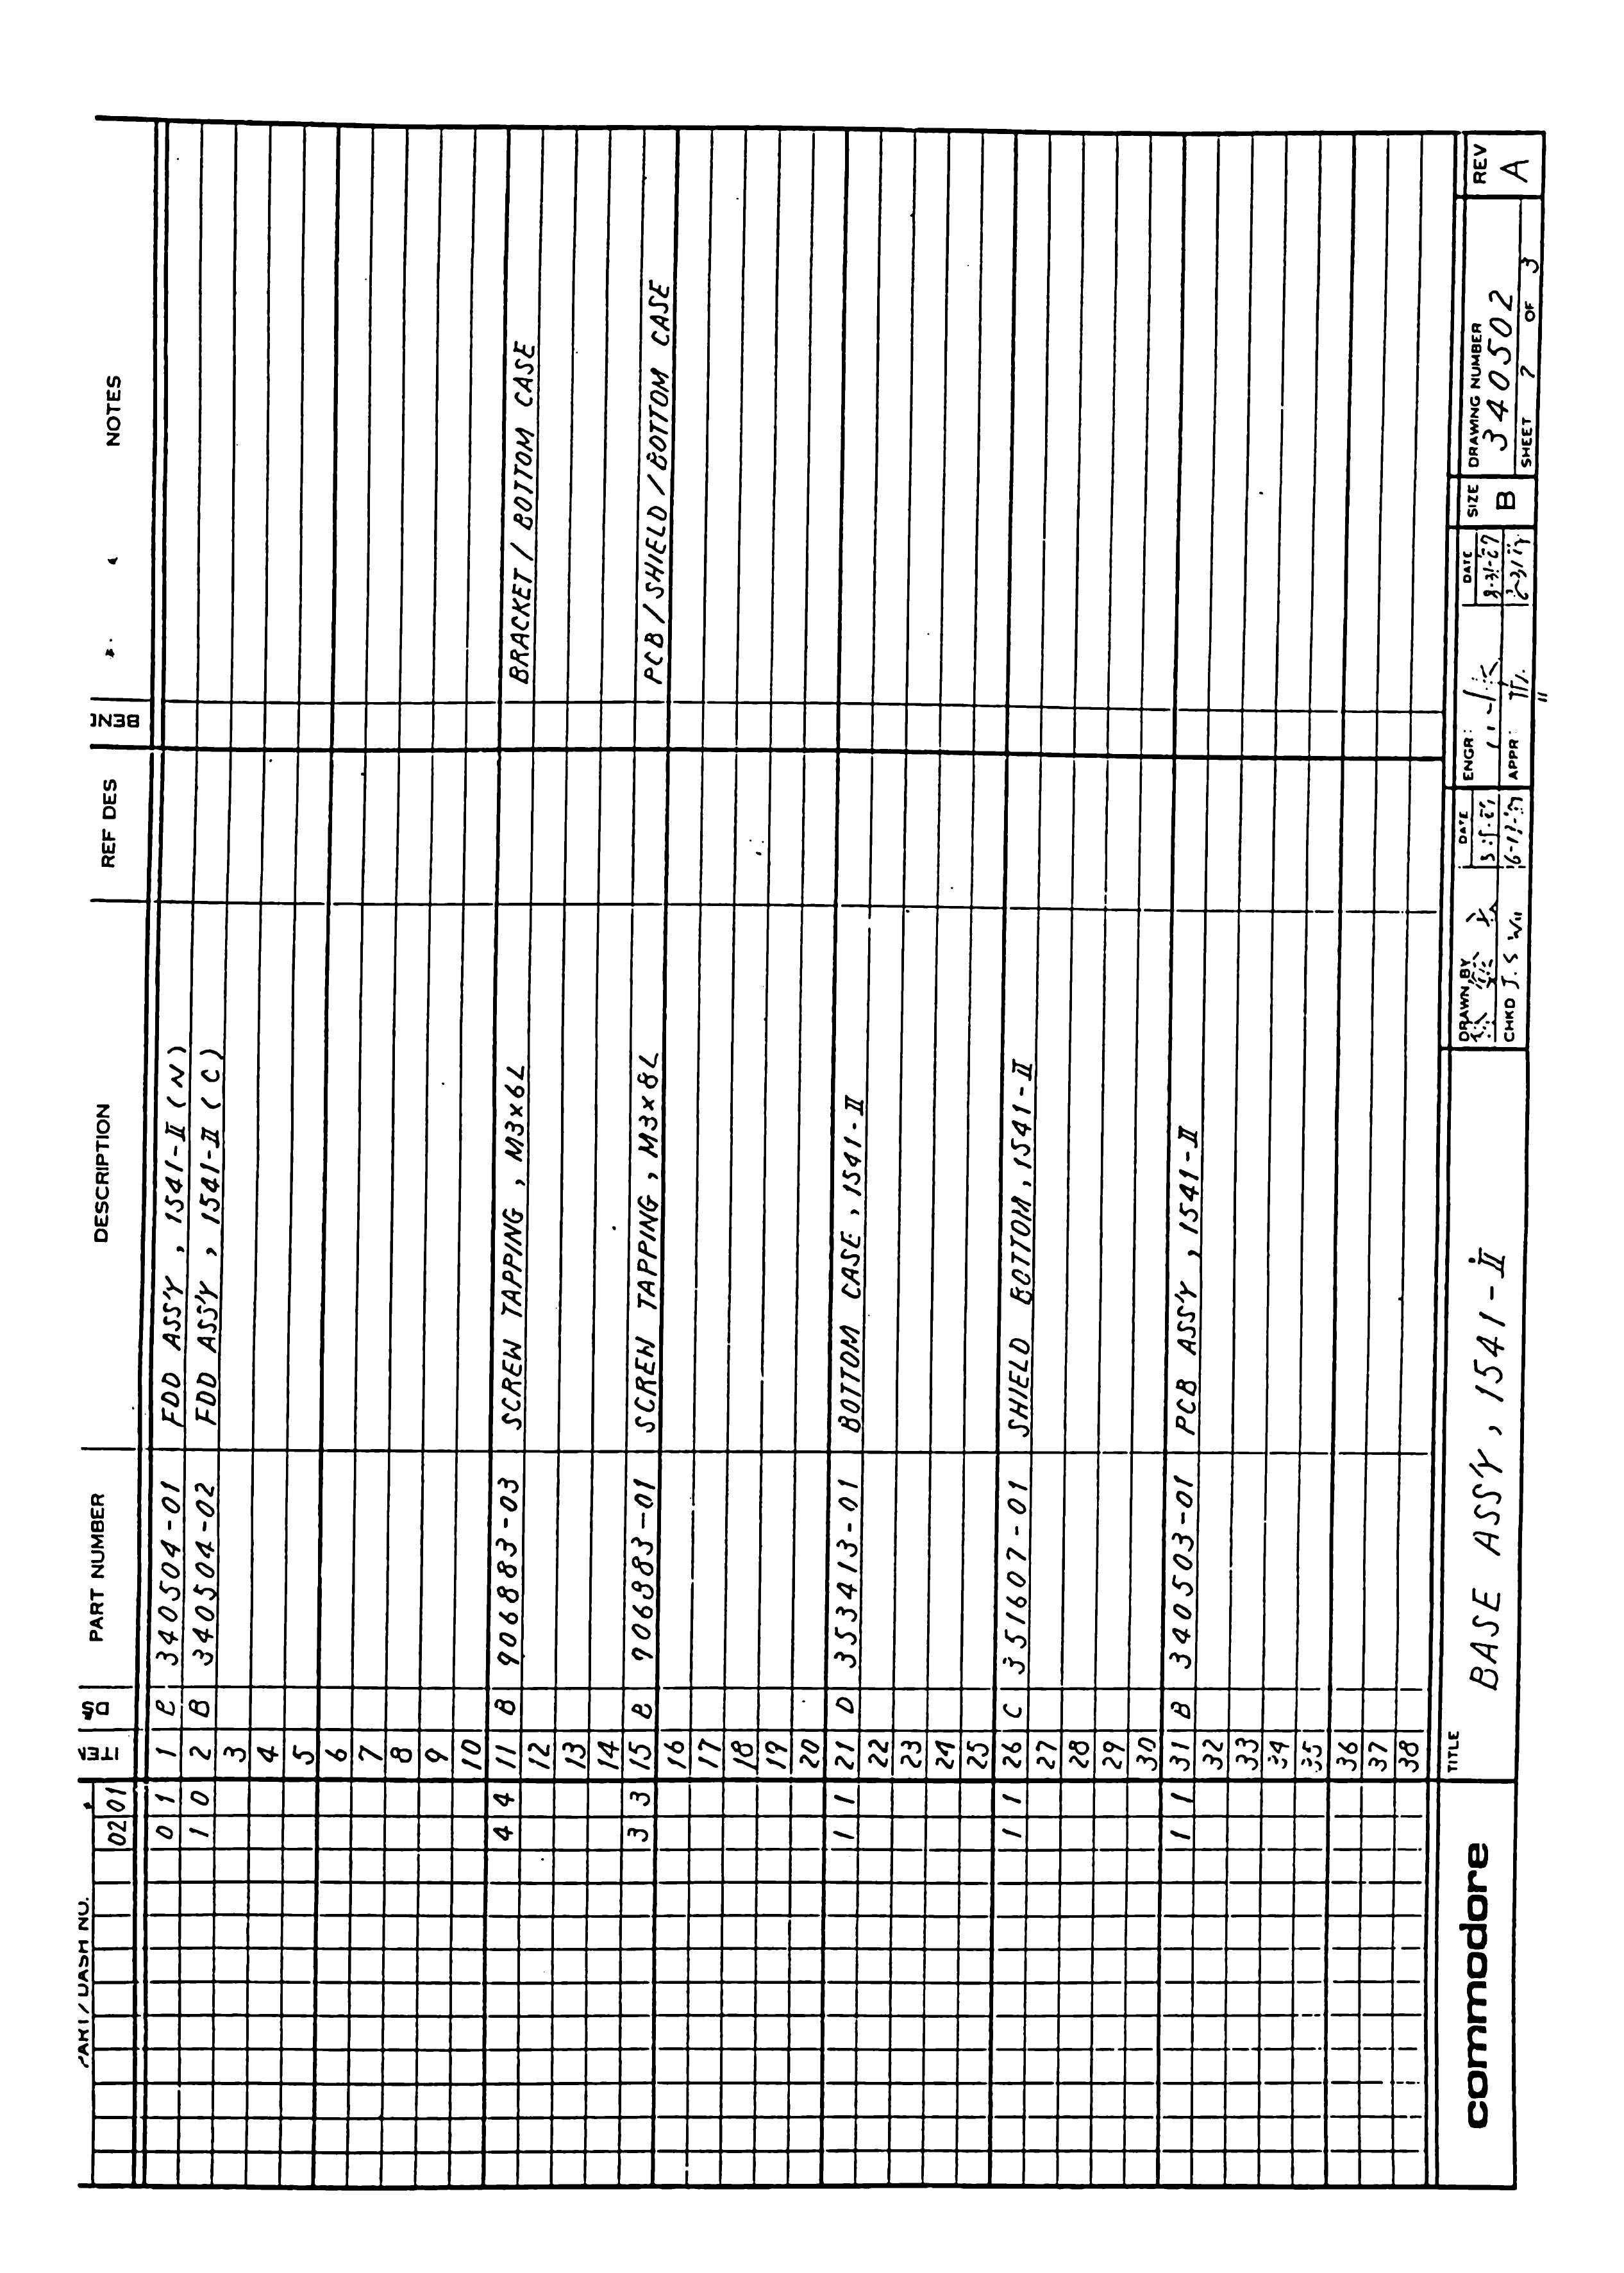 PART / DASH NO.
02 01 ITEM DS PART NUMBER DESCRIPTION REF DES NOTES
0 1 1 340504-01 FDD ASS'Y , 1541-II (N)
1 0 2 B 340504-02 FDD ASS'Y , 1541-II (C)
3
4
5
6
7
8
9
10
4 4 11 B 906883-03 SCREW TAPPING , M3x6L BRACKET / BOTTOM CASE
12
13
14
3 3 15 B 906883-01 SCREW TAPPING , M3x8L PCB / SHIELD / BOTTOM CASE
16
17
18
19
20
1 1 21 D 353413-01 BOTTOM CASE , 1541-II
22
23
24
25
1 1 26 C 351607-01 SHIELD BOTTOM , 1541-II
27
28
29
30
1 1 31 B 340503-01 PCB ASS'Y , 1541-II
32
33
34
35
36
37
38
commodore
TITLE
BASE ASS'Y , 1541-II
DRAWN BY
DATE
CHKD J. S Wu
ENGR:
DATE
APPR:
SIZE
B
DRAWING NUMBER
340502
SHEET OF 3
REV
A